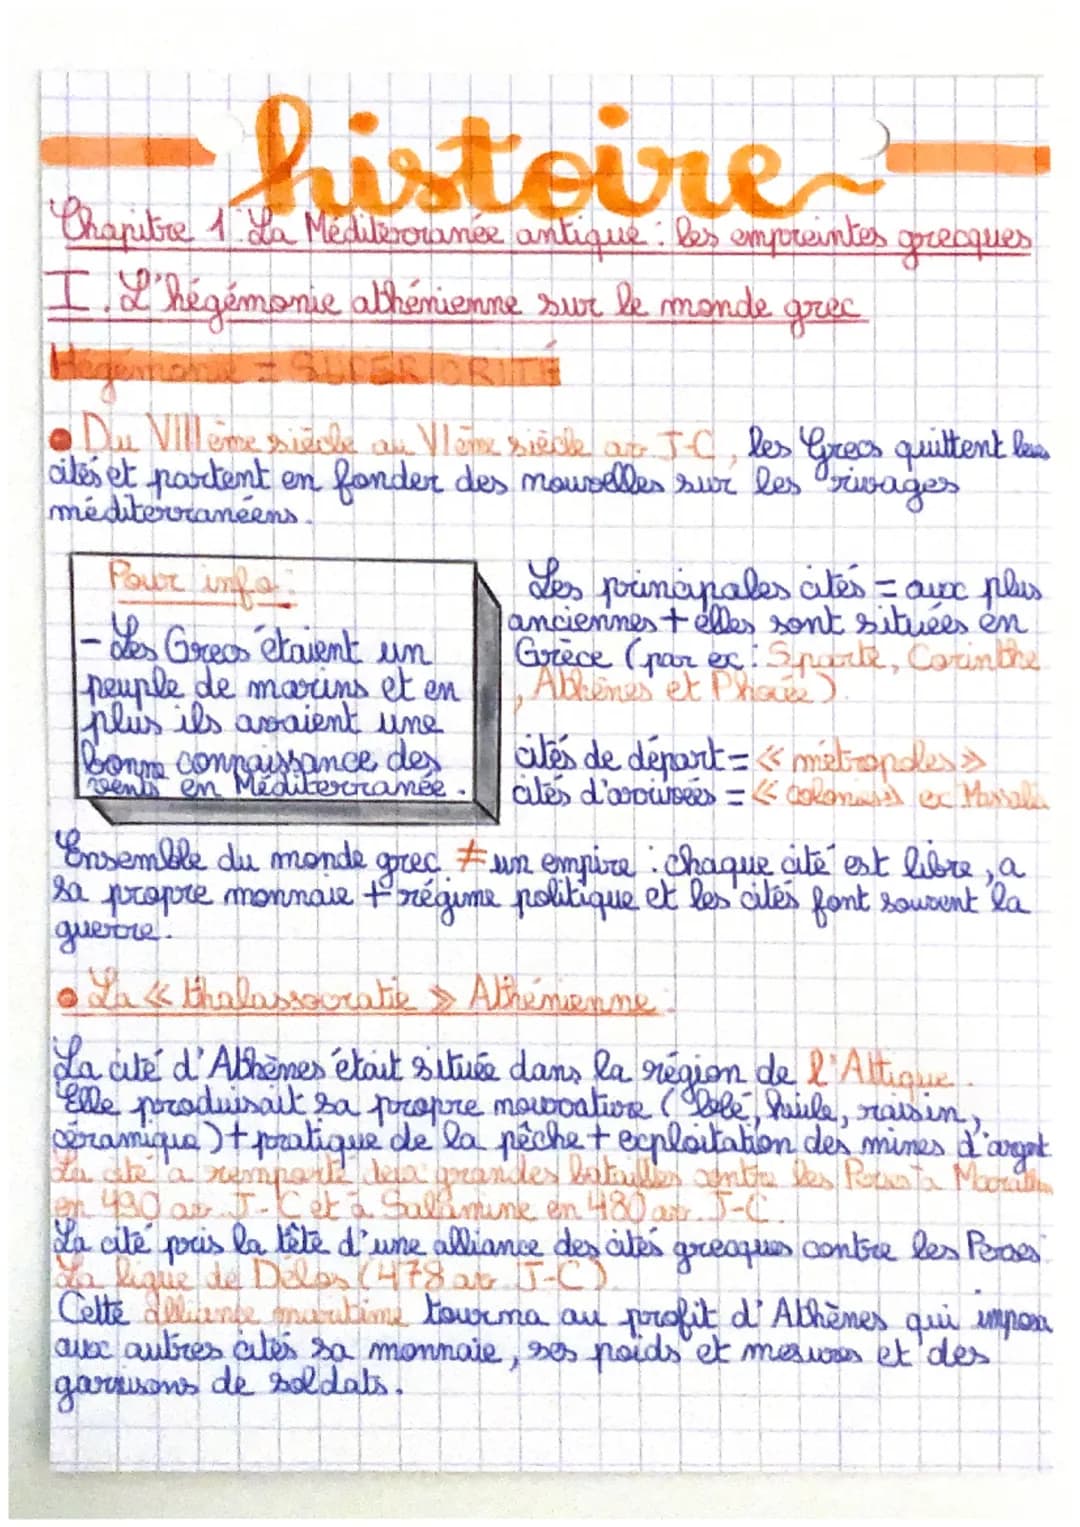 histoire
Chapitre 1: La Méditerranée antique: les empreintes grecques
I. L'hégémonie athénienne sur le monde grec
Hégémonie = SUPERIORITÉ
• Du VIIIème siècle au VIème siècle av J-C, les Grecs quittent leurs
cités et partent en fonder des nouvelles sur les rivages
méditerranéens.
Pour info:
- Les Grecs étaient un
peuple de marins et en
plus ils avaient une
bonne connaissance des
vents en Méditerranée.
Les principales cités = aux plus
anciennes + elles sont situées en
Grèce (par ex: Sparte, Corinthe
, Athènes et Phocée).
cités de départ = « métropoles »
cités d'arrivées = « colonies » ex Massalia
Ensemble du monde grec ≠ un empire: chaque cité est libre, a
sa propre monnaie + régime politique et les cités font souvent la
guerre.
• La « thalassocratie » Athénienne:
La cité d'Athènes était située dans la région de l'Attique.
Elle produisait sa propre nourriture (blé, huile, raisin,
céramique) + pratique de la pêche + exploitation des mines d'argent
La cité a remporté deja grandes batailles contre les Perses à Marathon
en 490 av. J-C et à Salamine en 480 av. J-C.
La cité pris la tête d'une alliance des cités grecques contre les Perses:
La ligue de Délos (478 av J-C)
Cette alliance maritime tourna au profit d'Athènes qui imposa
aux autres cités sa monnaie, ses poids et mesures et des
garnisons de soldats.